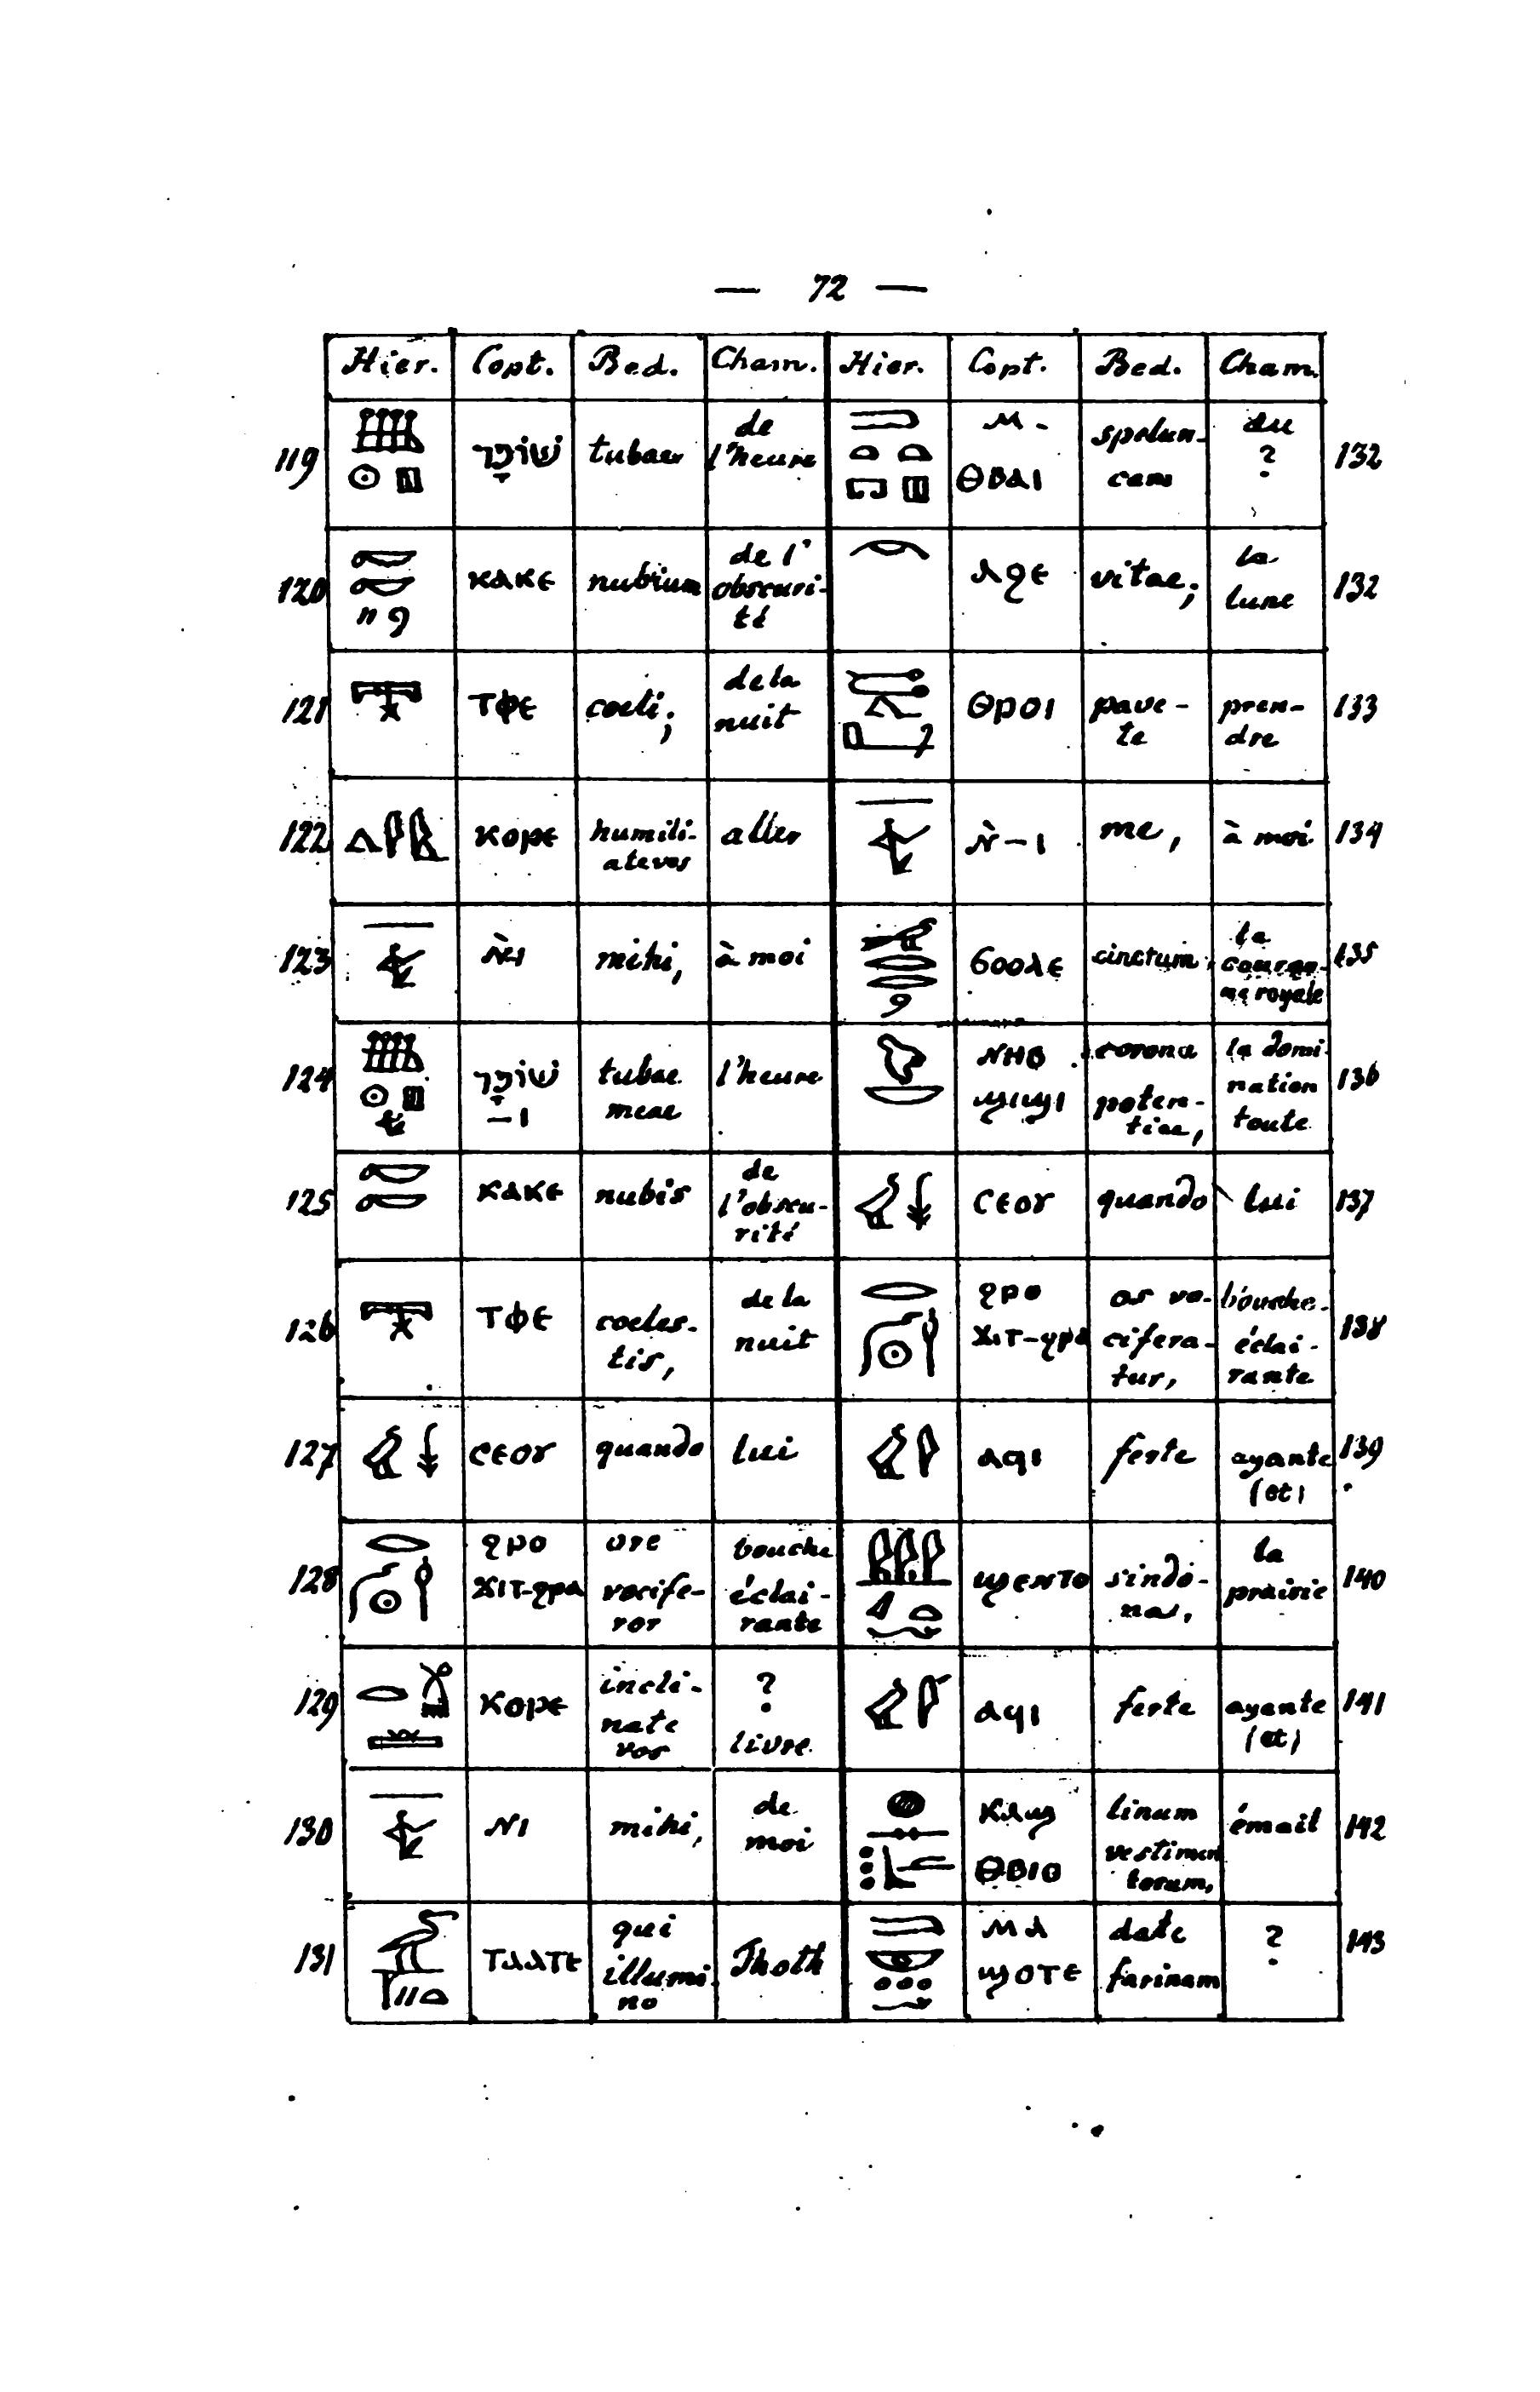 — 72 —
Hier. Copt. Bed. Cham. Hier. Copt. Bed. Cham.
119 שׁוֹפָר tubae de l'heure
ⲙ- ⲑⲃⲁⲓ spelun-cam du ? 132
120 ⲕⲁⲕⲉ nubium de l' obscuri-té
ⲁϩⲉ vitae; la lune 132
121 ⲧⲫⲉ coeli; de la nuit
ⲑⲣⲟⲓ pave-te pren-dre 133
122 ⲕⲟⲣⲉ humili-atevos aller
ⲛ̀-ⲓ me, à moi 134
123 ⲛ̀ⲓ mihi, à moi
ϭⲟⲟⲗⲉ cinctum, la couron-ne royale 135
124 שׁוֹפָר -ⲓ tubae meae l'heure
ⲛⲏⲃ ϣⲓϣⲓ corona poten-tiae, la domi-nation toute 136
125 ⲕⲁⲕⲉ nubis de l'obscu-rité
ⲥⲉⲟⲩ quando lui 137
126 ⲧⲫⲉ coeles-tis, de la nuit
ϩⲣⲟ ϫⲓⲧ-ϩⲣⲁ os vo-cifera-tur, bouche éclai-rante 138
127 ⲥⲉⲟⲩ quando lui
ⲁϥⲓ ferte ayante (et) 139
128 ϩⲣⲟ ϫⲓⲧ-ϩⲣⲁ ore vocife-ror bouche éclai-rante
ϣⲉⲛⲧⲟ sindo-nas, la prairie 140
129 ⲕⲟⲣⲉ incli-nate vos ? livre
ⲁϥⲓ ferte ayante (et) 141
130 ⲛⲓ mihi, de moi
ⲕⲁϣ ⲑⲃⲓⲟ linum vestimen-torum, émail 142
131 ⲧⲁⲁⲧⲉ qui illumi-no Thoth
ⲙⲁ ϣⲟⲧⲉ date farinam ? 143